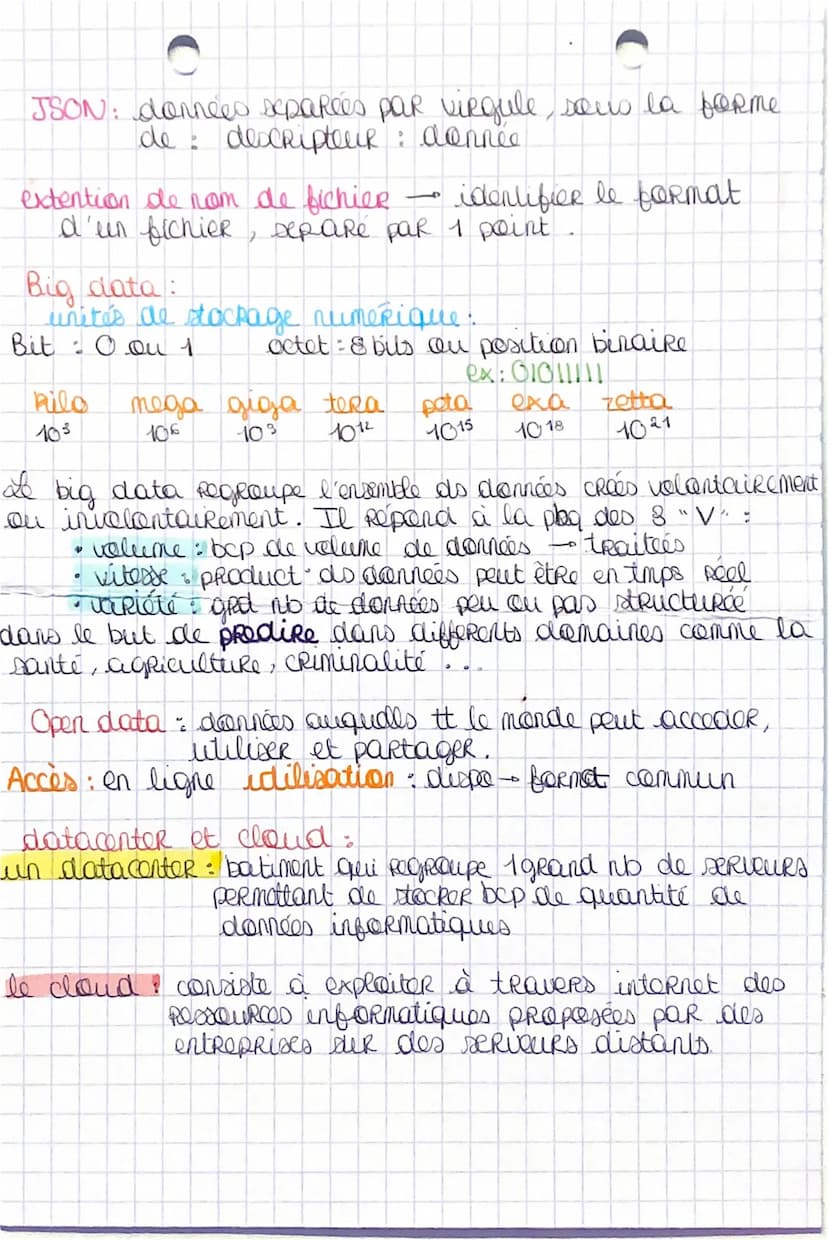 JSON : données séparées par virgule, sous la forme
de : descripteur : donnée
extention de nom de fichier → identifier le format
d'un fichier, séparé par 1 point.
Big data :
unités de stockage numérique :
Bit : 0 ou 1 octet : 8 bits ou position binaire
ex : 01011111
kilo mega giga tera peta exa zetta
10³ 10⁶ 10⁹ 10¹² 10¹⁵ 10¹⁸ 10²¹
Le big data regroupe l'ensemble ds données créés volontairement
ou involontairement. Il répond à la pbq des 3 "V" :
• volume : bcp de volume de données → traiteés
• vitesse : product° ds données peut être en tmps réel
• variété : grd nb de données peu ou pas structurée
dans le but de prédire dans différents domaines comme la
santé, agriculture, criminalité ...
Open data : données auquelles tt le monde peut accéder,
utiliser et partager.
Accès : en ligne utilisation : dispo → format commun
datacenter et cloud :
un datacenter : batiment qui regroupe 1 grand nb de serveurs
permettant de stocker bcp de quantité de
données informatiques
le cloud : consiste à exploiter à travers internet des
ressources informatiques proposées par des
entreprises sur des serveurs distants.